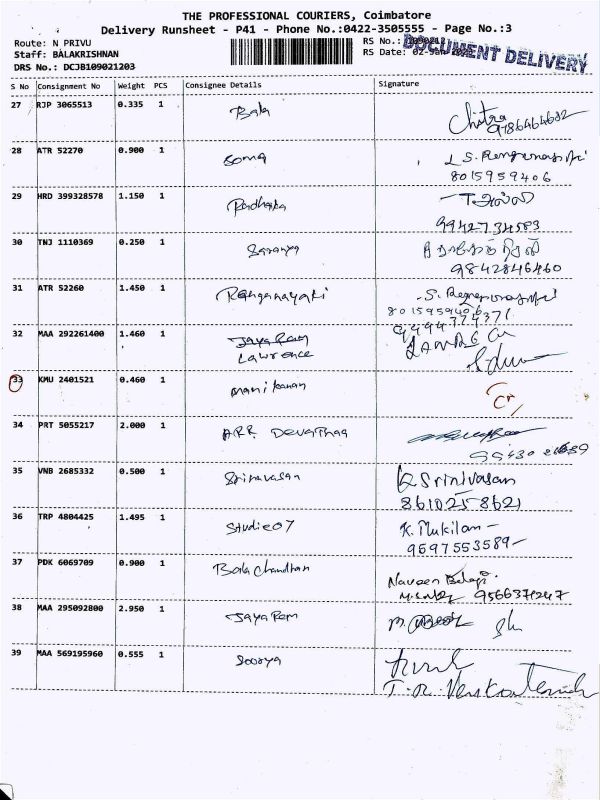 THE PROFESSIONAL COURIERS, Coimbatore
Delivery Runsheet - P41 - Phone No.:0422-3505555 - Page No.:3
Route: N PRIVU
RS No.:
DOCUMENT DELIVERY
Staff: BALAKRISHNAN
RS Date: 02-Jan
DRS No.: DCJB109021203
S No Consignment No Weight PCS Consignee Details Signature
27 RJP 3065513 0.335 1 Bala Chitra
9786464682
28 ATR 52270 0.900 1 Soma
8015959406
29 HRD 399328578 1.150 1 Radhaka
9942734583
30 TNJ 1110369 0.250 1 Saranya
9842846460
31 ATR 52260 1.450 1 Ranganayaki
8015959406
9494774371
32 MAA 292261400 1.460 1 Jaya Ram
Lawrence
33 KMU 2401521 0.460 1 Manikanan
34 PRT 5055217 2.000 1 ARR Devathaa
35 VNB 2685332 0.500 1 Srinavasan Srinivasan
8610258621
36 TRP 4804425 1.495 1 Studio07 K. Mukilan
9597553589
37 PDK 6069709 0.900 1 Bala Chandhan Naveen Balaji.
9566371247
38 MAA 295092800 2.950 1 Jaya Ram
39 MAA 569195960 0.555 1 Soorya